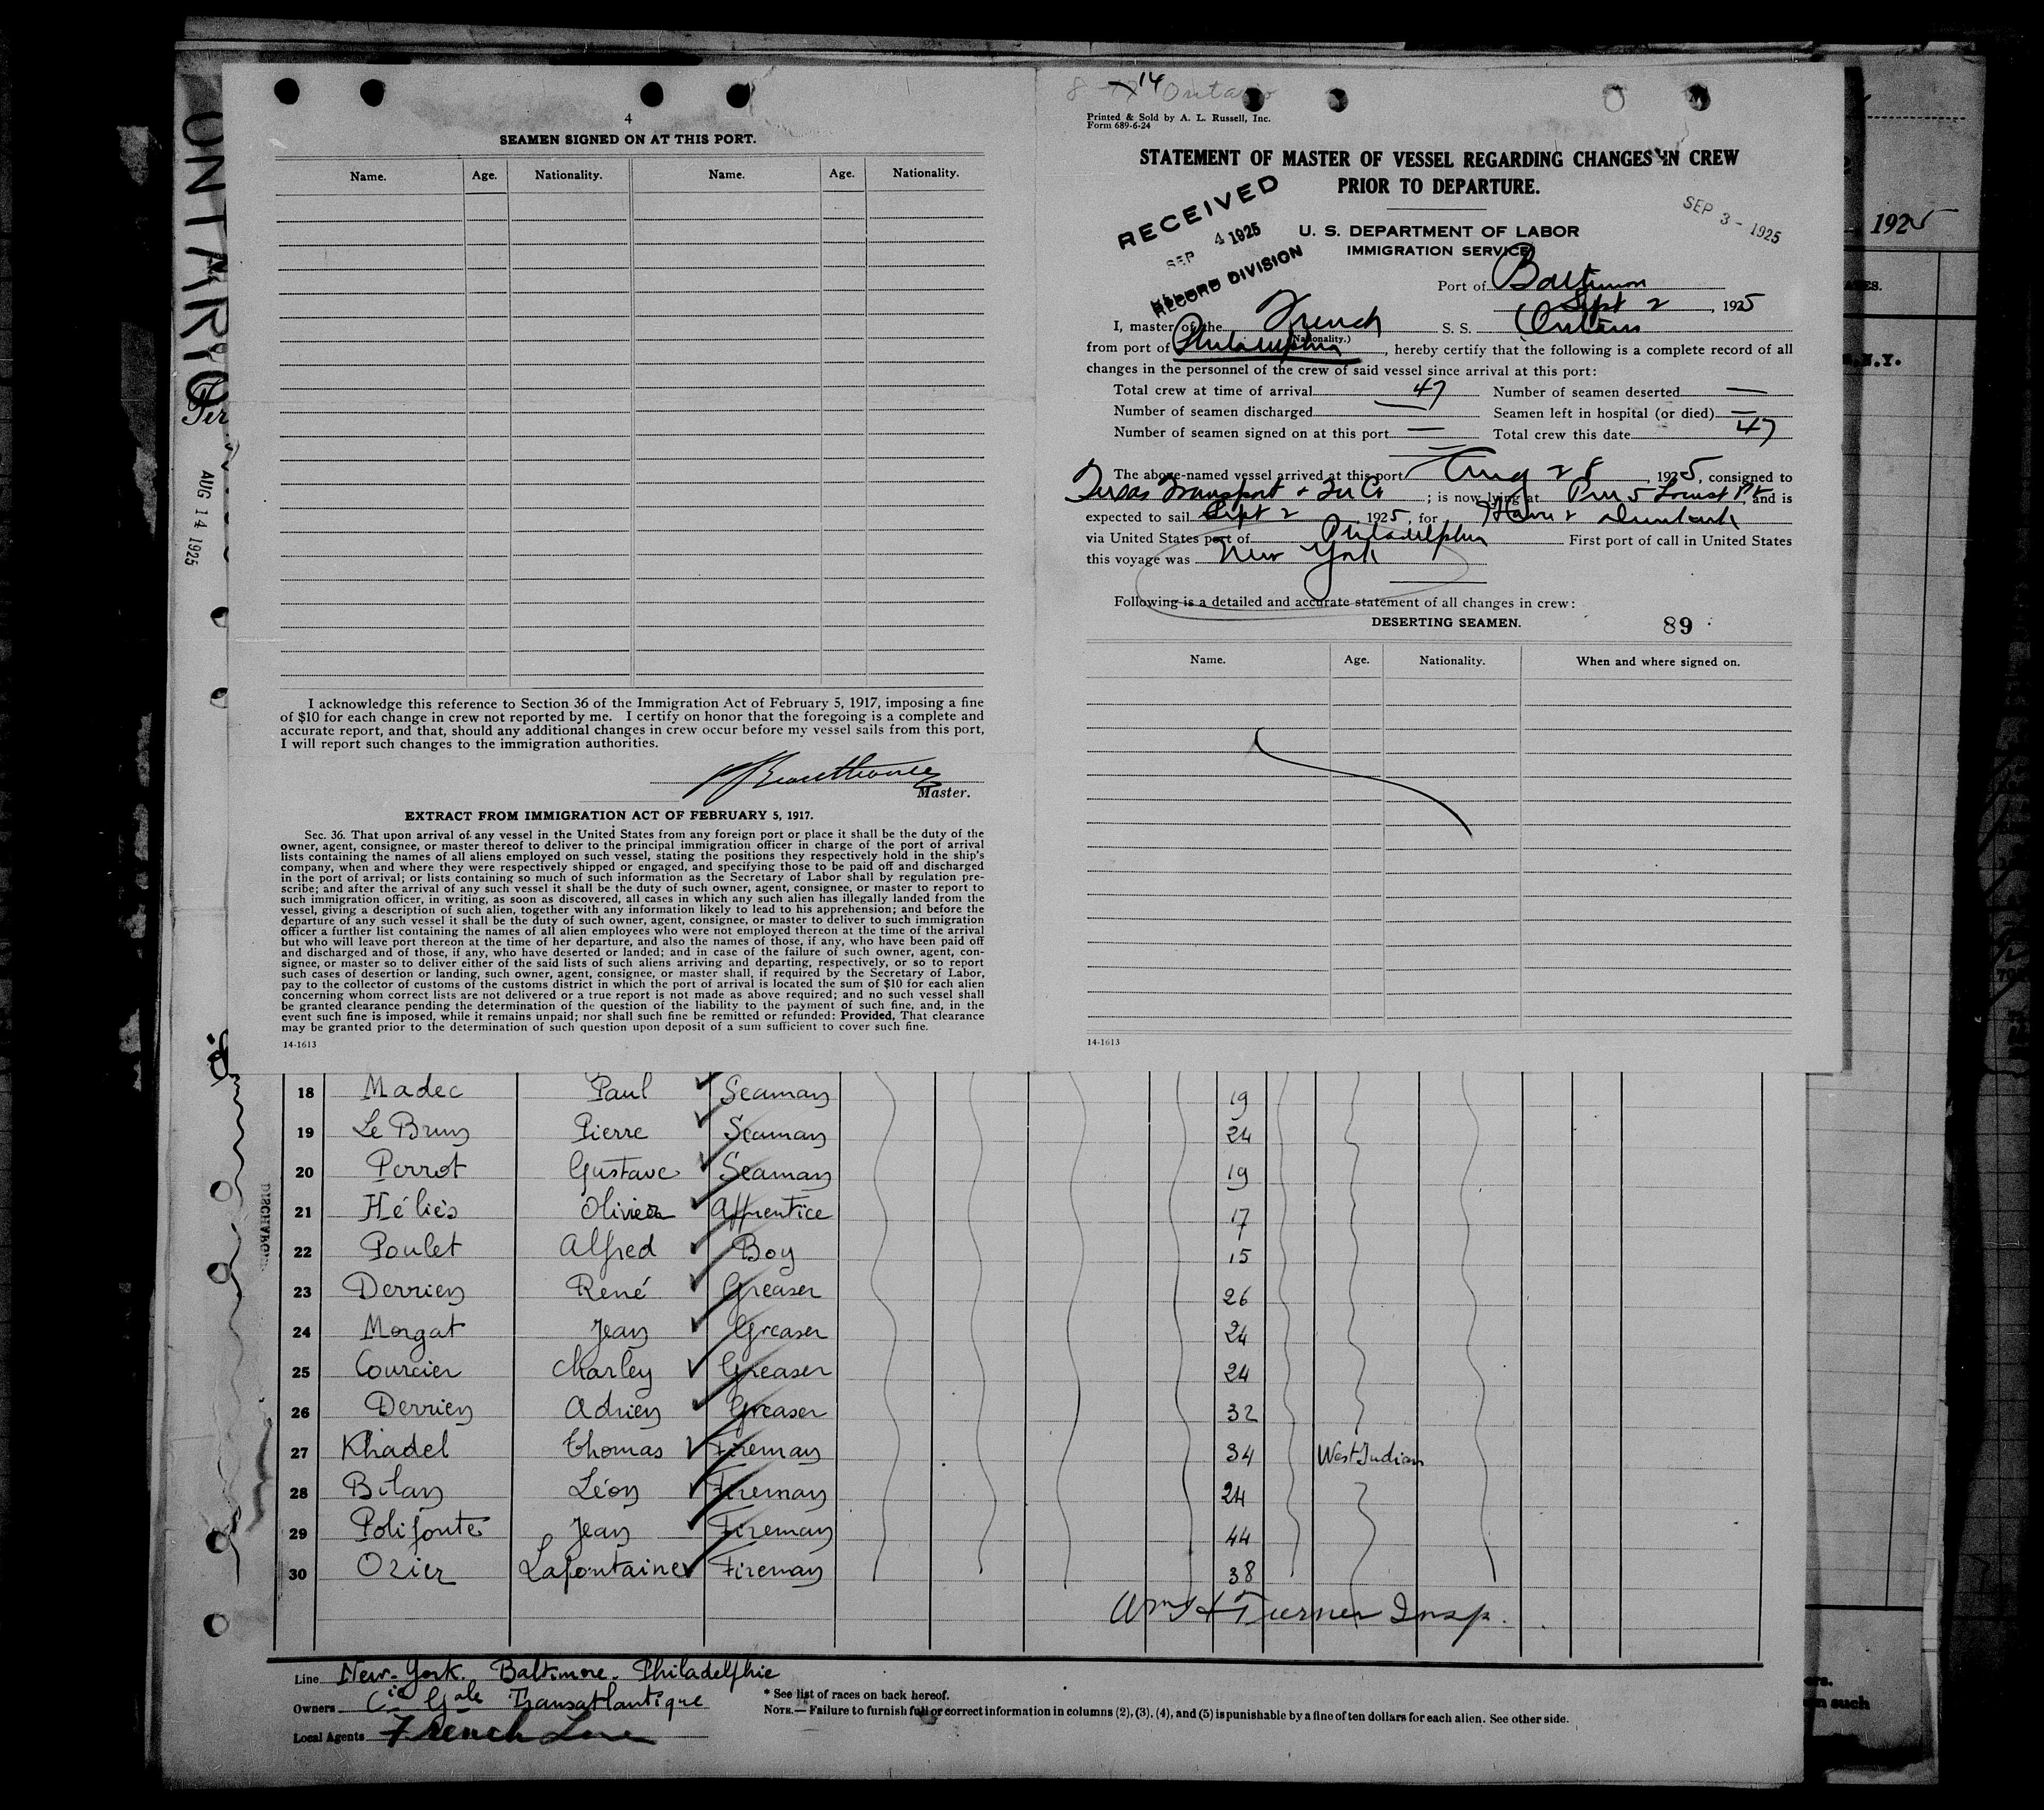 ONTARIO
AUG 14 1925
4
SEAMEN SIGNED ON AT THIS PORT.
Name. Age. Nationality. Name. Age. Nationality.
I acknowledge this reference to Section 36 of the Immigration Act of February 5, 1917, imposing a fine
of $10 for each change in crew not reported by me. I certify on honor that the foregoing is a complete and
accurate report, and that, should any additional changes in crew occur before my vessel sails from this port,
I will report such changes to the immigration authorities.
Master.
EXTRACT FROM IMMIGRATION ACT OF FEBRUARY 5, 1917.
Sec. 36. That upon arrival of any vessel in the United States from any foreign port or place it shall be the duty of the
owner, agent, consignee, or master thereof to deliver to the principal immigration officer in charge of the port of arrival
lists containing the names of all aliens employed on such vessel, stating the positions they respectively hold in the ship's
company, when and where they were respectively shipped or engaged, and specifying those to be paid off and discharged
in the port of arrival; or lists containing so much of such information as the Secretary of Labor shall by regulation pre-
scribe; and after the arrival of any such vessel it shall be the duty of such owner, agent, consignee, or master to report to
such immigration officer, in writing, as soon as discovered, all cases in which any such alien has illegally landed from the
vessel, giving a description of such alien, together with any information likely to lead to his apprehension; and before the
departure of any such vessel it shall be the duty of such owner, agent, consignee, or master to deliver to such immigration
officer a further list containing the names of all alien employees who were not employed thereon at the time of the arrival
but who will leave port thereon at the time of her departure, and also the names of those, if any, who have been paid off
and discharged and of those, if any, who have deserted or landed; and in case of the failure of such owner, agent, con-
signee, or master so to deliver either of the said lists of such aliens arriving and departing, respectively, or so to report
such cases of desertion or landing, such owner, agent, consignee, or master shall, if required by the Secretary of Labor,
pay to the collector of customs of the customs district in which the port of arrival is located the sum of $10 for each alien
concerning whom correct lists are not delivered or a true report is not made as above required; and no such vessel shall
be granted clearance pending the determination of the question of the liability to the payment of such fine, and, in the
event such fine is imposed, while it remains unpaid; nor shall such fine be remitted or refunded: Provided, That clearance
may be granted prior to the determination of such question upon deposit of a sum sufficient to cover such fine.
14-1613
14 Ontario
Printed & Sold by A. L. Russell, Inc.
Form 689-6-24
STATEMENT OF MASTER OF VESSEL REGARDING CHANGES IN CREW
PRIOR TO DEPARTURE.
RECEIVED
SEP 4 1925
RECORD DIVISION
SEP 3 - 1925
U. S. DEPARTMENT OF LABOR
IMMIGRATION SERVICE
Port of Baltimore
Sept 2, 1925
I, master of the French S. S. Ontario
(Nationality.)
from port of Philadelphia, hereby certify that the following is a complete record of all
changes in the personnel of the crew of said vessel since arrival at this port:
Total crew at time of arrival 47 Number of seamen deserted —
Number of seamen discharged — Seamen left in hospital (or died) —
Number of seamen signed on at this port — Total crew this date 47
The above-named vessel arrived at this port Aug 28, 1925, consigned to
Texas Transport + Ter Co; is now lying at Pier 5 Locust Pt and is
expected to sail Sept 2, 1925, for Havre & Dunkirk
via United States port of Philadelphia First port of call in United States
this voyage was New York
Following is a detailed and accurate statement of all changes in crew:
DESERTING SEAMEN. 89
Name. Age. Nationality. When and where signed on.
14-1613
1925
N.Y.
18 Madec Paul Seaman 19
19 Le Brun Pierre Seaman 24
20 Perrot Gustave Seaman 19
21 Héliès Olivier Apprentice 17
22 Poulet Alfred Boy 15
23 Derrien René Greaser 26
24 Morgat Jean Greaser 24
25 Courcier Charley Greaser 24
26 Derrien Adrien Greaser 32
27 Khadel Thomas Fireman 34 West Indian
28 Bilan Léon Fireman 24
29 Polifonte Jean Fireman 44
30 Ozier Lafontaine Fireman 38
Wm H Turner Insp.
Line New-York. Baltimore. Philadelphie
Owners Cie Gale Transatlantique
Local Agents French Line
* See list of races on back hereof.
NOTE.— Failure to furnish full or correct information in columns (2), (3), (4), and (5) is punishable by a fine of ten dollars for each alien. See other side.